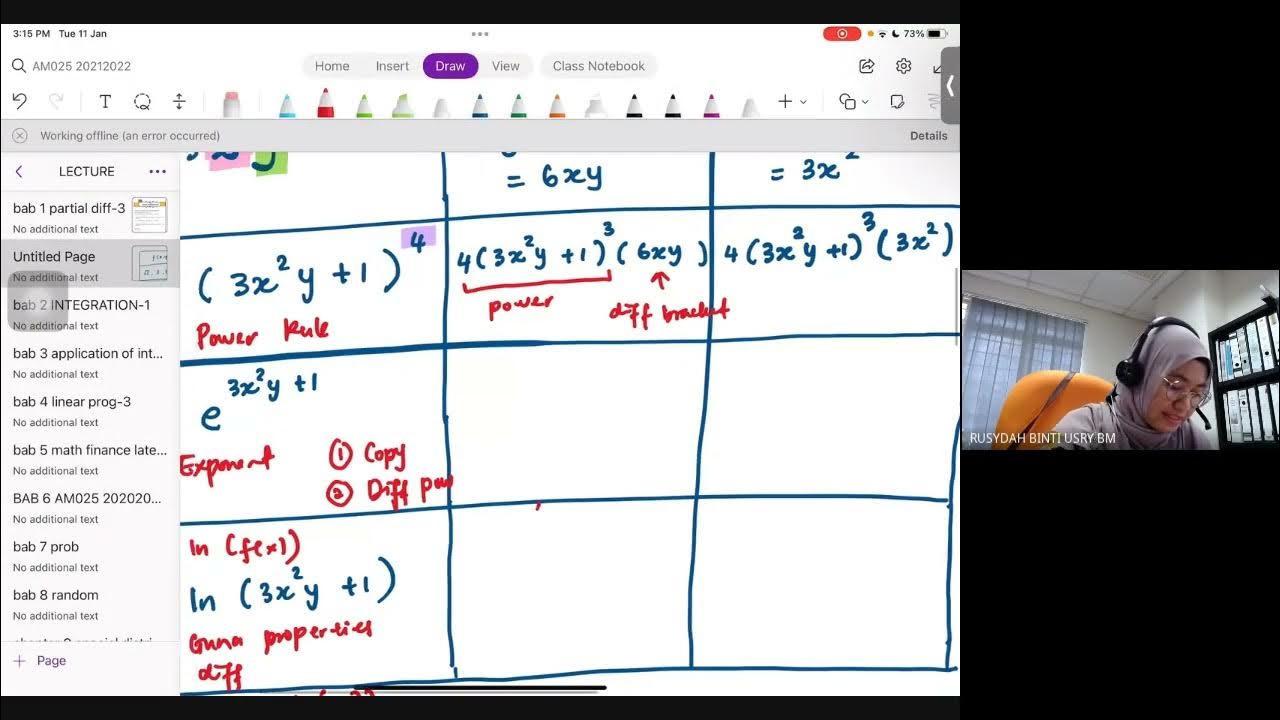 3:15 PM Tue 11 Jan
73%
AM025 20212022
Home Insert Draw View Class Notebook
Working offline (an error occurred)
Details
LECTURE
bab 1 partial diff-3
No additional text
Untitled Page
No additional text
bab 2 INTEGRATION-1
No additional text
bab 3 application of int...
No additional text
bab 4 linear prog-3
No additional text
bab 5 math finance late...
No additional text
BAB 6 AM025 202020...
No additional text
bab 7 prob
No additional text
bab 8 random
No additional text
+ Page
= 6xy
= 3x²
(3x²y + 1)⁴
4(3x²y + 1)³(6xy)
4(3x²y + 1)³(3x²)
power
diff bracket
Power Rule
e^(3x²y + 1)
Exponent
① Copy
② Diff pow
ln (f(x))
ln (3x²y + 1)
Guna properties
diff
RUSYDAH BINTI USRY BM